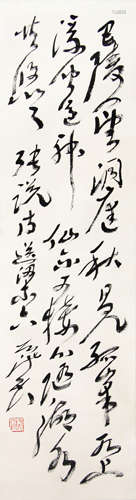 巴陵一望洞庭秋日見孤峯水上
浮聞道神仙不可接心隨湖水
共悠悠 張說詩送梁六